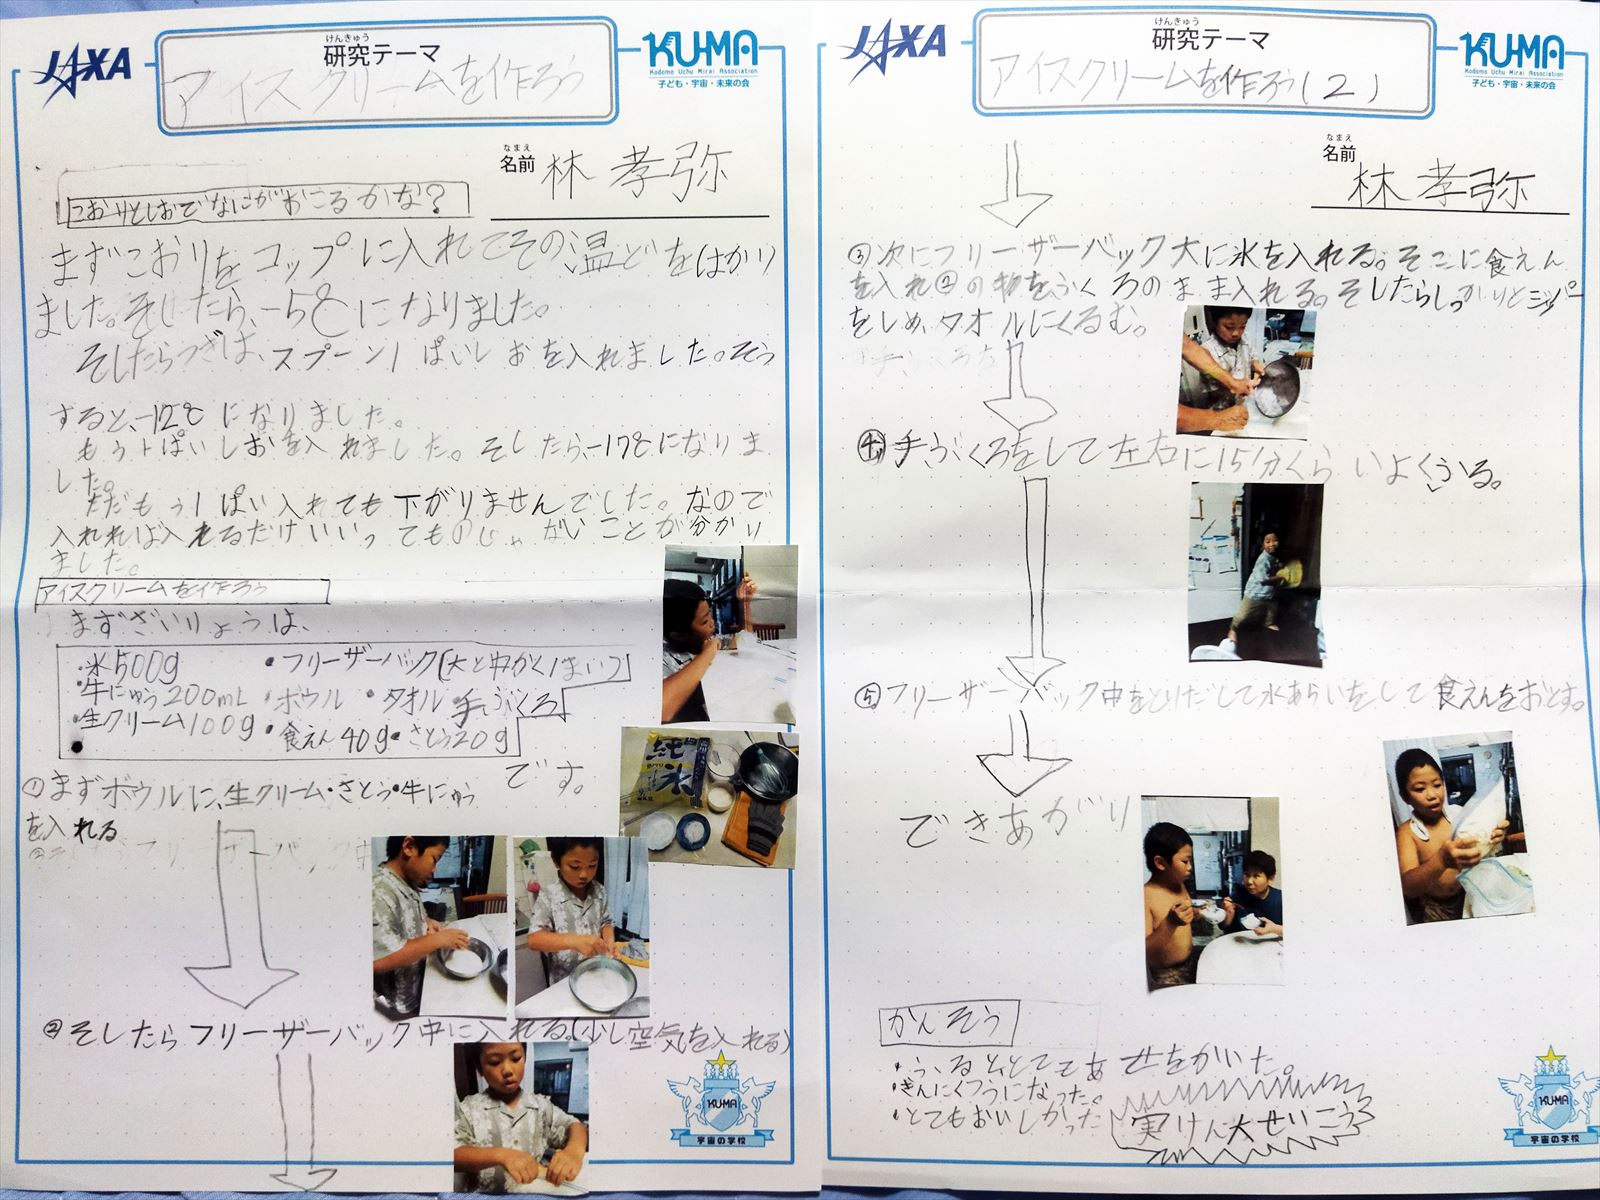 JAXA
けんきゅう
研究テーマ
アイスクリームを作ろう
KU-MA
Kodomo Uchu Mirai Association
子ども・宇宙・未来の会
なまえ
名前 林 孝弥
こおりとしおでなにがおこるかな?
まずこおりをコップに入れてその温どをはかり
ました。そしたら、-5℃になりました。
そしたらつぎは、スプーン1ぱいしおを入れました。そう
すると、-12℃になりました。
もう1ぱいしおを入れました。そしたら、-17℃になりま
した。
ただもう1ぱい入れても下がりませんでした。なので
入れれば入れるだけいいってものじゃないことが分かり
ました。
アイスクリームを作ろう
まずざいりょうは、
・氷500g ・フリーザーバック(大と中かく1まいつ)
・牛にゅう200mL ・ボウル ・タオル 手ぶくろ
・生クリーム100g ・食えん40g・さとう20g
です。
①まずボウルに、生クリーム・さとう・牛にゅう
を入れる
純氷
②そしたらフリーザーバック中に入れる。(少し空気を入れる)
KU-MA
宇宙の学校
JAXA
けんきゅう
研究テーマ
アイスクリームを作ろう(2)
KU-MA
Kodomo Uchu Mirai Association
子ども・宇宙・未来の会
なまえ
名前 林 孝弥
③次にフリーザーバック大に氷を入れる。そこに食えん
を入れ②の物をふくろのまま入れる。そしたらしっかりとジッパー
をしめ、タオルにくるむ。
④手ぶくろをして左右に15分くらいよくふる。
⑤フリーザーバック中をとりだして水あらいをして食えんをおとす。
できあがり
かんそう
・ふるととてもあせをかいた。
・きんにくつうになった。
・とてもおいしかった
実けん大せいこう
KU-MA
宇宙の学校